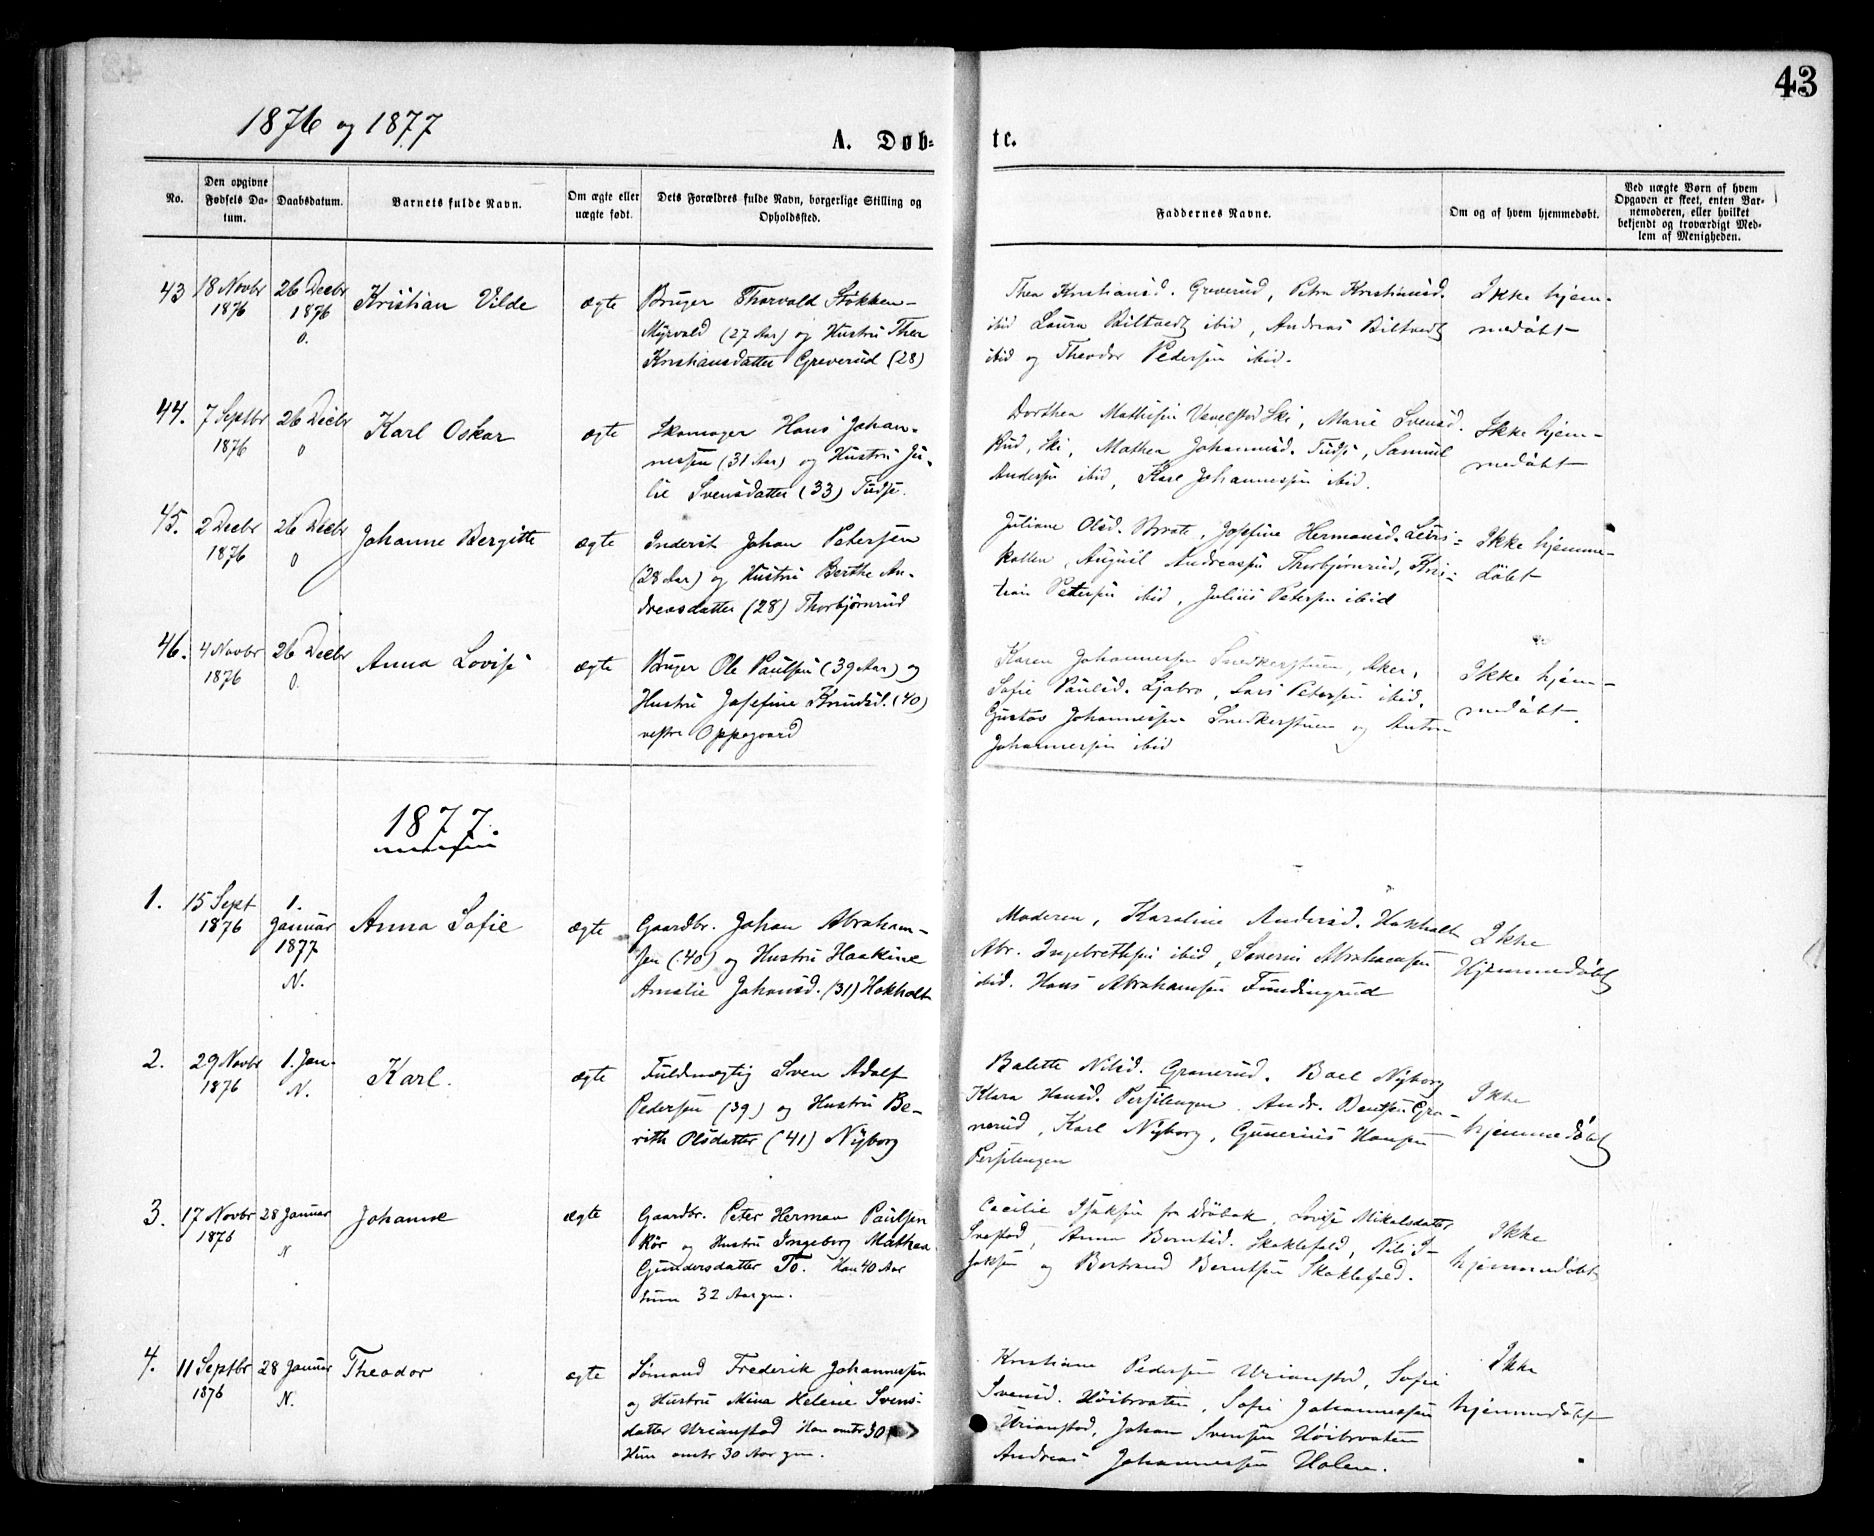 43
1876 og 1877
A. Døb-
te.
No.
Den opgivne Fødsels Da-
tum.
Daabsdatum.
Barnets fulde Navn.
Om ægte eller
uægte født.
Dets Forældres fulde Navn, borgerlige Stilling og
Opholdssted.
Faddernes Navne.
Om og af hvem hjemmedøbt.
Ved uægte Børn af hvem
Opgaven er skeet, enten Bar-
nemoderen, eller hvilket
bekjendt og troværdigt Med-
lem af Menigheden.
43
18 Novbr
1876
26 Decbr
1876
O.
Kristian Vilde
ægte
Bruger Thorvald Stokken-
Myrvold (27 Aar) og Hustru Thea
Kristiansdatter Greverud (28)
Thea Kristiansd. Greverud, Petra Kristiansd.
ibid Laura Biltvedt ibid, Andreas Biltvedt
ibid og Theodor Pedersen ibid.
Ikke hjem-
medøbt
44.
7 Septbr
1876
26 Decbr
O
Karl Oskar
ægte
Skomager Hans Johan-
nessen (31 Aar) og Hustru Ju-
lie Svensdatter (33) Tudse.
Dorthea Mathisen Vevelstad Ski, Marie Svensd.
Rud, Ski, Mathea Johannesd. Tudse, Samuel
Andersen ibid, Karl Johannessen ibid.
Ikke hjem-
medøbt
45.
2 Decbr
1876
26 Decbr
O
Johanne Bergitte
ægte
Inderst Johan Petersen
(28 Aar) og Hustru Berthe An-
dreasdatter (28) Thorbjørnrud
Juliane Olsd. Braate, Josefine Hermansd. Leiris-
kollen, August Andreassen Thorbjørnrud, Kris-
tian Petersen ibid, Julius Petersen ibid
Ikke hjemme-
døbt
46.
4 Novbr
1876
26 Decbr
O.
Anna Lovise
ægte
Bruger Ole Paulsen (39 Aar) og
Hustru Josefine Knudsd. (40)
vestre Oppegaard
Karen Johannessen Snekkerstuen, Aker,
Sofie Paulsd. Ljabro, Lars Petersen ibid,
Gustav Johannessen Snekkerstuen og Anton
Johannessen ibid
Ikke hjem-
medøbt.
1877.
1.
15 Sept
1876
1.
Januar
1877
N.
Anna Sofie
ægte
Gaardbr. Johan Abraham-
sen (40) og Hustru Haakine
Amalie Johansd. (31) Hokholt
Moderen, Karoline Andersd. Hokholt
Abr. Ingebretsen ibid, Severin Abrahamsen
ibid. Hans Abrahamsen Fundingrud
Ikke
Hjemmedøbt
2.
29 Novbr
1876
1. Jan-
N.
Karl.
ægte
Fuldmægtig Sven Adolf
Pedersen (39) og Hustru Be-
rith Olsdatter (41) Nyborg
Balette Nilsd. Granerud. Boel Nyborg
Klara Hansd. Persilengen. Andr. Bentsen Gra-
nerud, Karl Nyborg, Gunerius Hansen
Persilengen
Ikke
hjemmedøbt
3.
17 Novbr
1876
28 Januar
N
Johanne
ægte
Gaardbr. Peter Herman Paulsen
Kør og Hustru Ingeborg Mathea
Gundersdatter To. Han 40 Aar
hun 32 Aar gm.
Cecilie Isaksen fra Drøbak, Lovise Mikalsdatter
Ivestad, Anna Berntsd. Skoklefald, Nils I-
saksen og Bertrand Berntsen Skoklefald.
Ikke
hjemmedøbt
4.
11 Septbr
1876
28 Januar
N.
Theodor
ægte
Sømand Frederik Johannessen
og Hustru Mina Helene Svens-
datter Urianstad Han omtr 30
Hun omtr 30 Aar gm.
Kristiane Pedersen Urianstad, Sofie
Svensd. Høibraaten, Sofie Johannessen
Urianstad, Johan Svensen Høibraaten
Andreas Johannessen Holen.
Ikke
hjemmedøbt